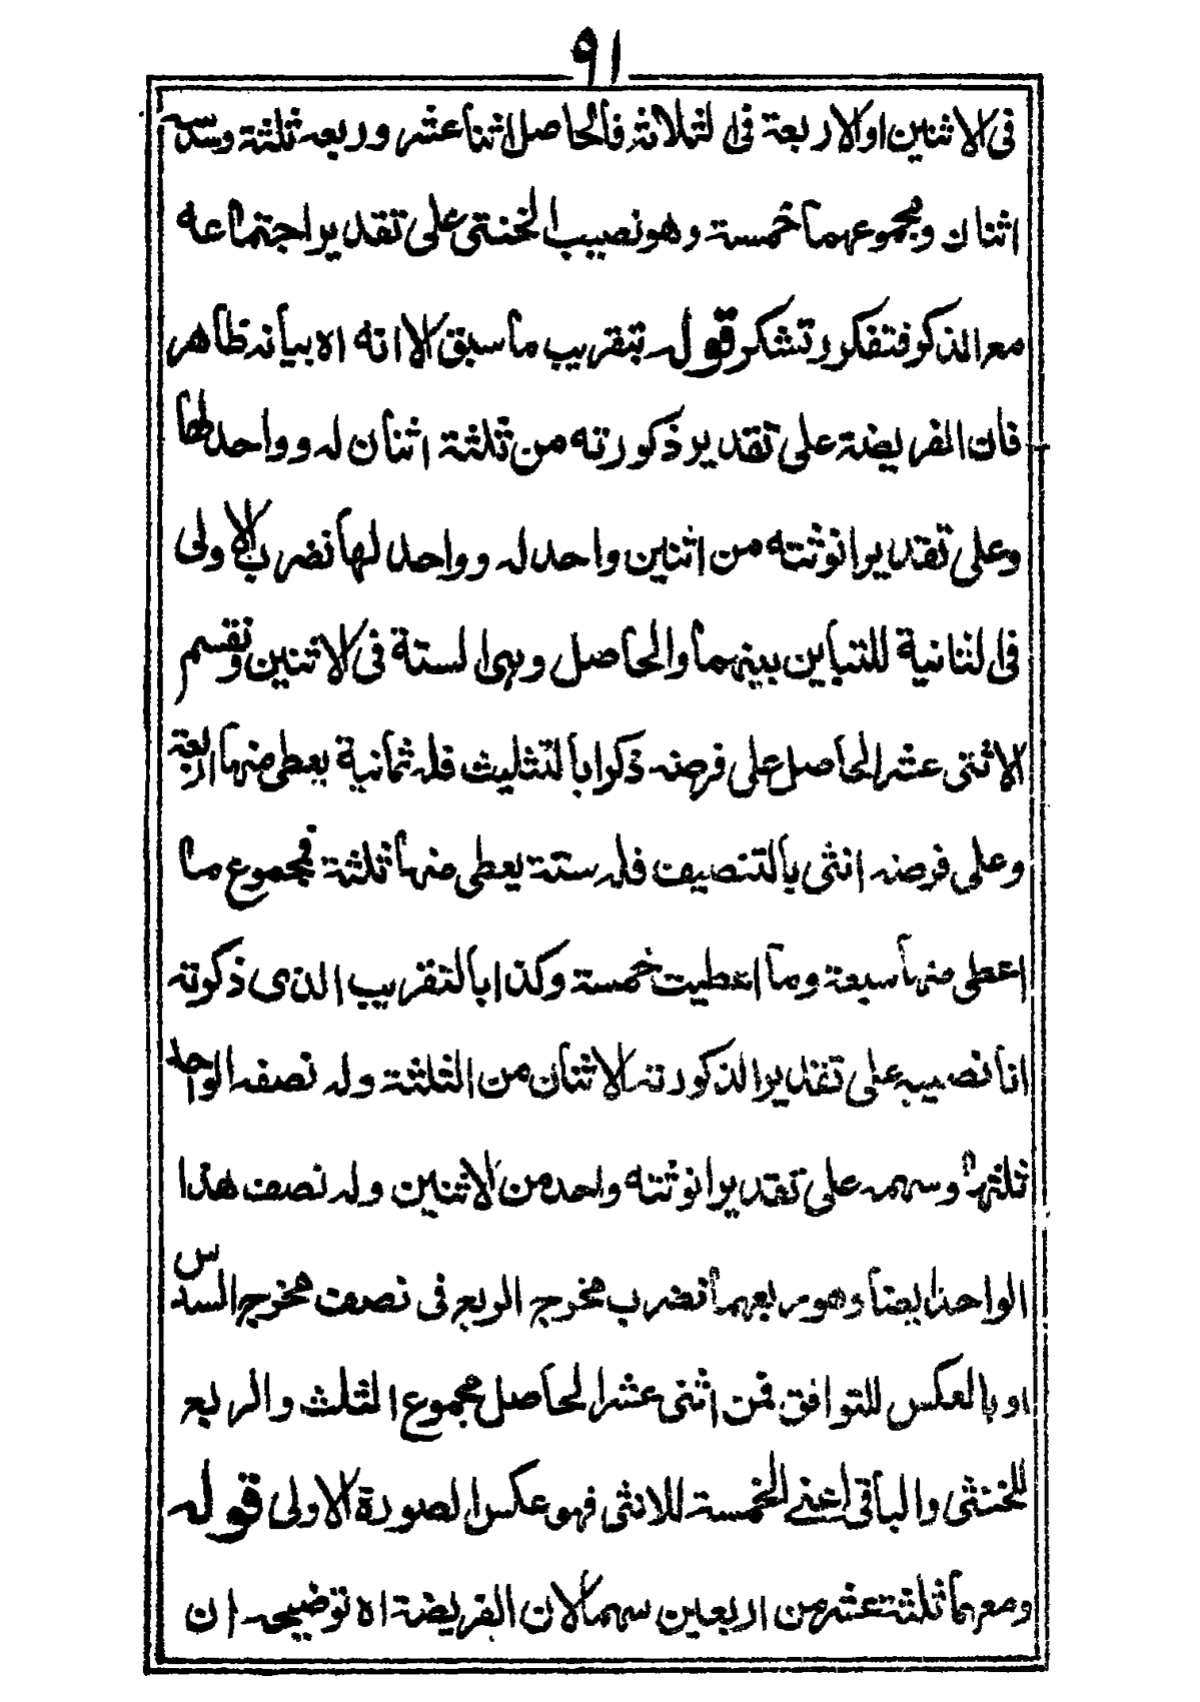 ٩١
فى الاثنين او الاربعة فى الثلاثة فالحاصل اثنا عشر وربعه ثلثة وسدسه
اثنان ومجموعهما خمسة وهو نصيب الخنثى على تقدير اجتماعه
مع الذكر فتفكر وتشكر قوله بتقريب ما سبق الا انه اه بيانه ظاهر
فان الفريضة على تقدير ذكورته من ثلثة اثنان له وواحد لها
وعلى تقدير انوثته من اثنين واحد له وواحد لها نضرب الاولى
فى الثانية للتباين بينهما والحاصل وهى الستة فى الاثنين ونقسم
الاثنى عشر الحاصل على فرضه ذكرا بالتثليث فله ثمانية يعطى منها اربعة
وعلى فرضه انثى بالتنصيف فله ستة يعطى منها ثلثة فمجموع ما
اعطى منها سبعة وما اعطيت خمسة وكذا بالتقريب الذى ذكرته
انا نصيبه على تقدير الذكورته الاثنان من الثلثة وله نصفه الواحد
ثلثها وسهمه على تقدير انوثته واحد من الاثنين وله نصف هذا
الواحد ايضا وهو ربعهما نضرب مخرج الربع فى نصف مخرج السدس
او بالعكس للتوافق فمن اثنى عشر الحاصل مجموع الثلث والربع
للخنثى والباقى اعنى الخمسة للانثى فهو عكس الصورة الاولى قوله
ومعهما ثلثة عشر من اربعين سهما لان الفريضة اه توضيحه ان